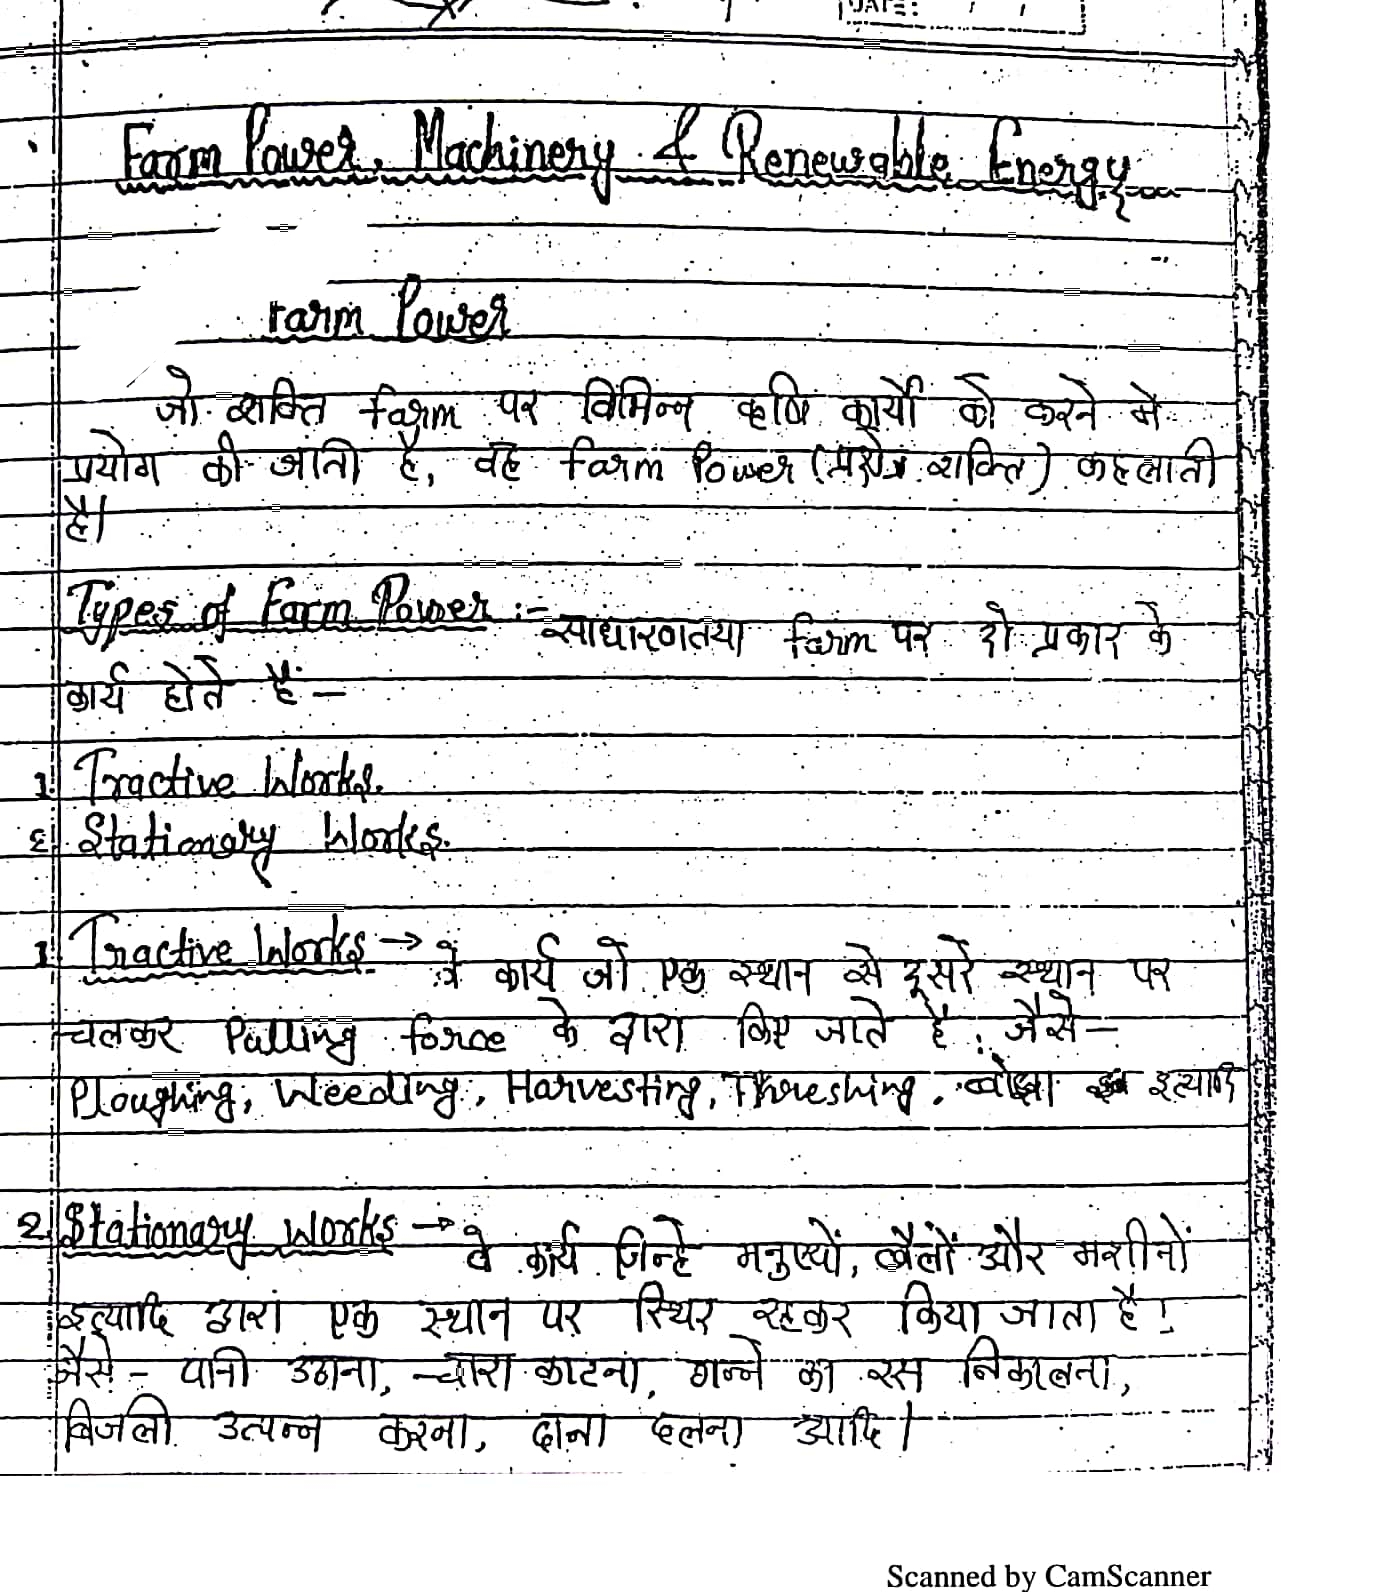 DATE:
Farm Power, Machinery & Renewable Energy
Farm Power
जो शक्ति farm पर विभिन्न कृषि कार्यो को करने मे
प्रयोग की जाती है, वह farm Power ( शक्ति) कहलाती
है।
Types of Farm Power :- साधारणतया farm पर दो प्रकार के
कार्य होते हैं -
1. Tractive Works.
2. Stationary Works.
1. Tractive Works → वे कार्य जो एक स्थान से दूसरे स्थान पर
चलकर Pulling force के द्वारा किए जाते है। जैसे-
Ploughing, Weeding, Harvesting, Threshing, बोझा इत्यादि
2. Stationary Works → वे कार्य जिन्हे मनुष्यों, बैलों और मशीनों
इत्यादि द्वारा एक स्थान पर स्थिर रहकर किया जाता है।
जैसे - पानी उठाना, चारा काटना, गन्ने का रस निकालना,
बिजली उत्पन्न करना, दाना दलना आदि।
Scanned by CamScanner